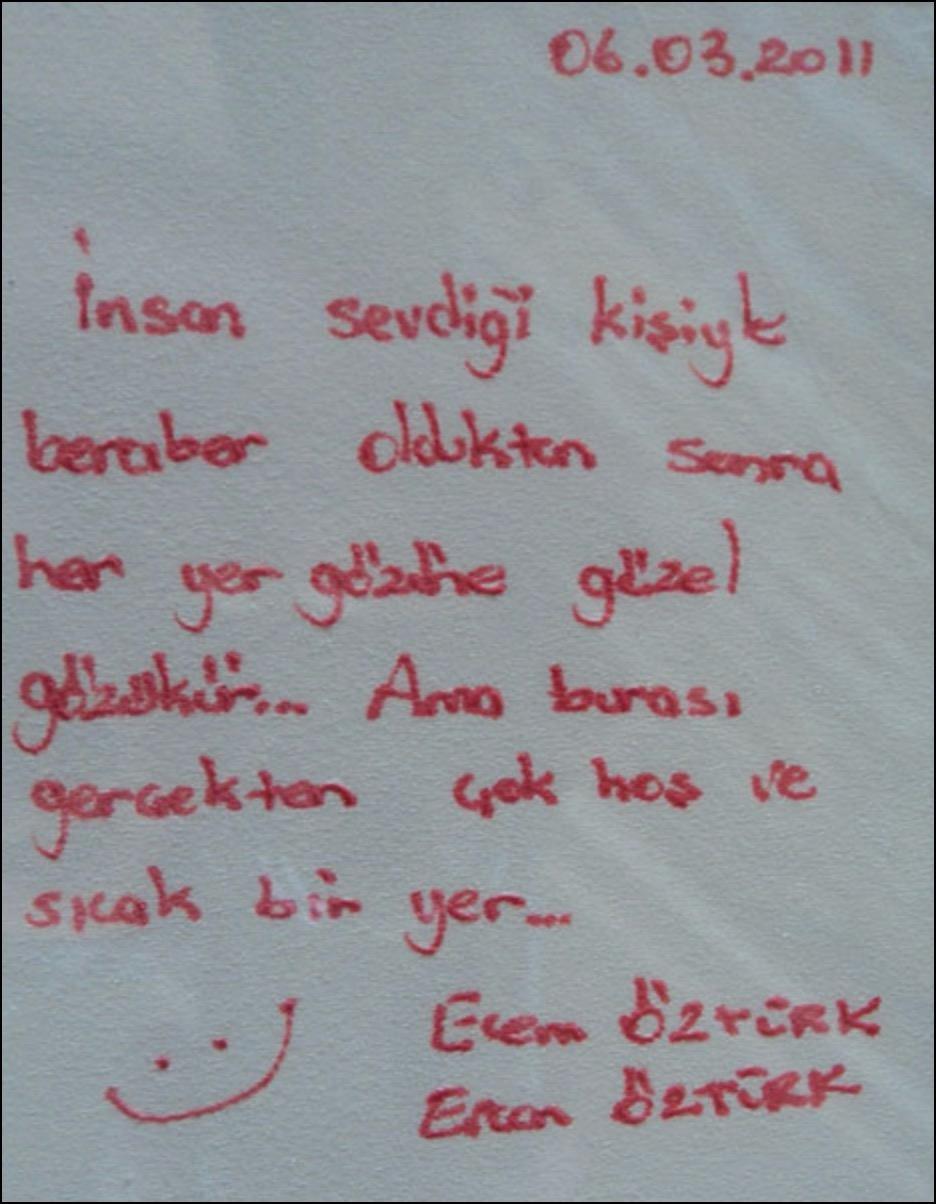 06.03.2011
İnsan sevdiği kişiyle
beraber olduktan sonra
her yer gözüne güzel
gözükür... Ama burası
gerçekten çok hoş ve
sıcak bir yer...
Ecem ÖZTÜRK
Ercan ÖZTÜRK